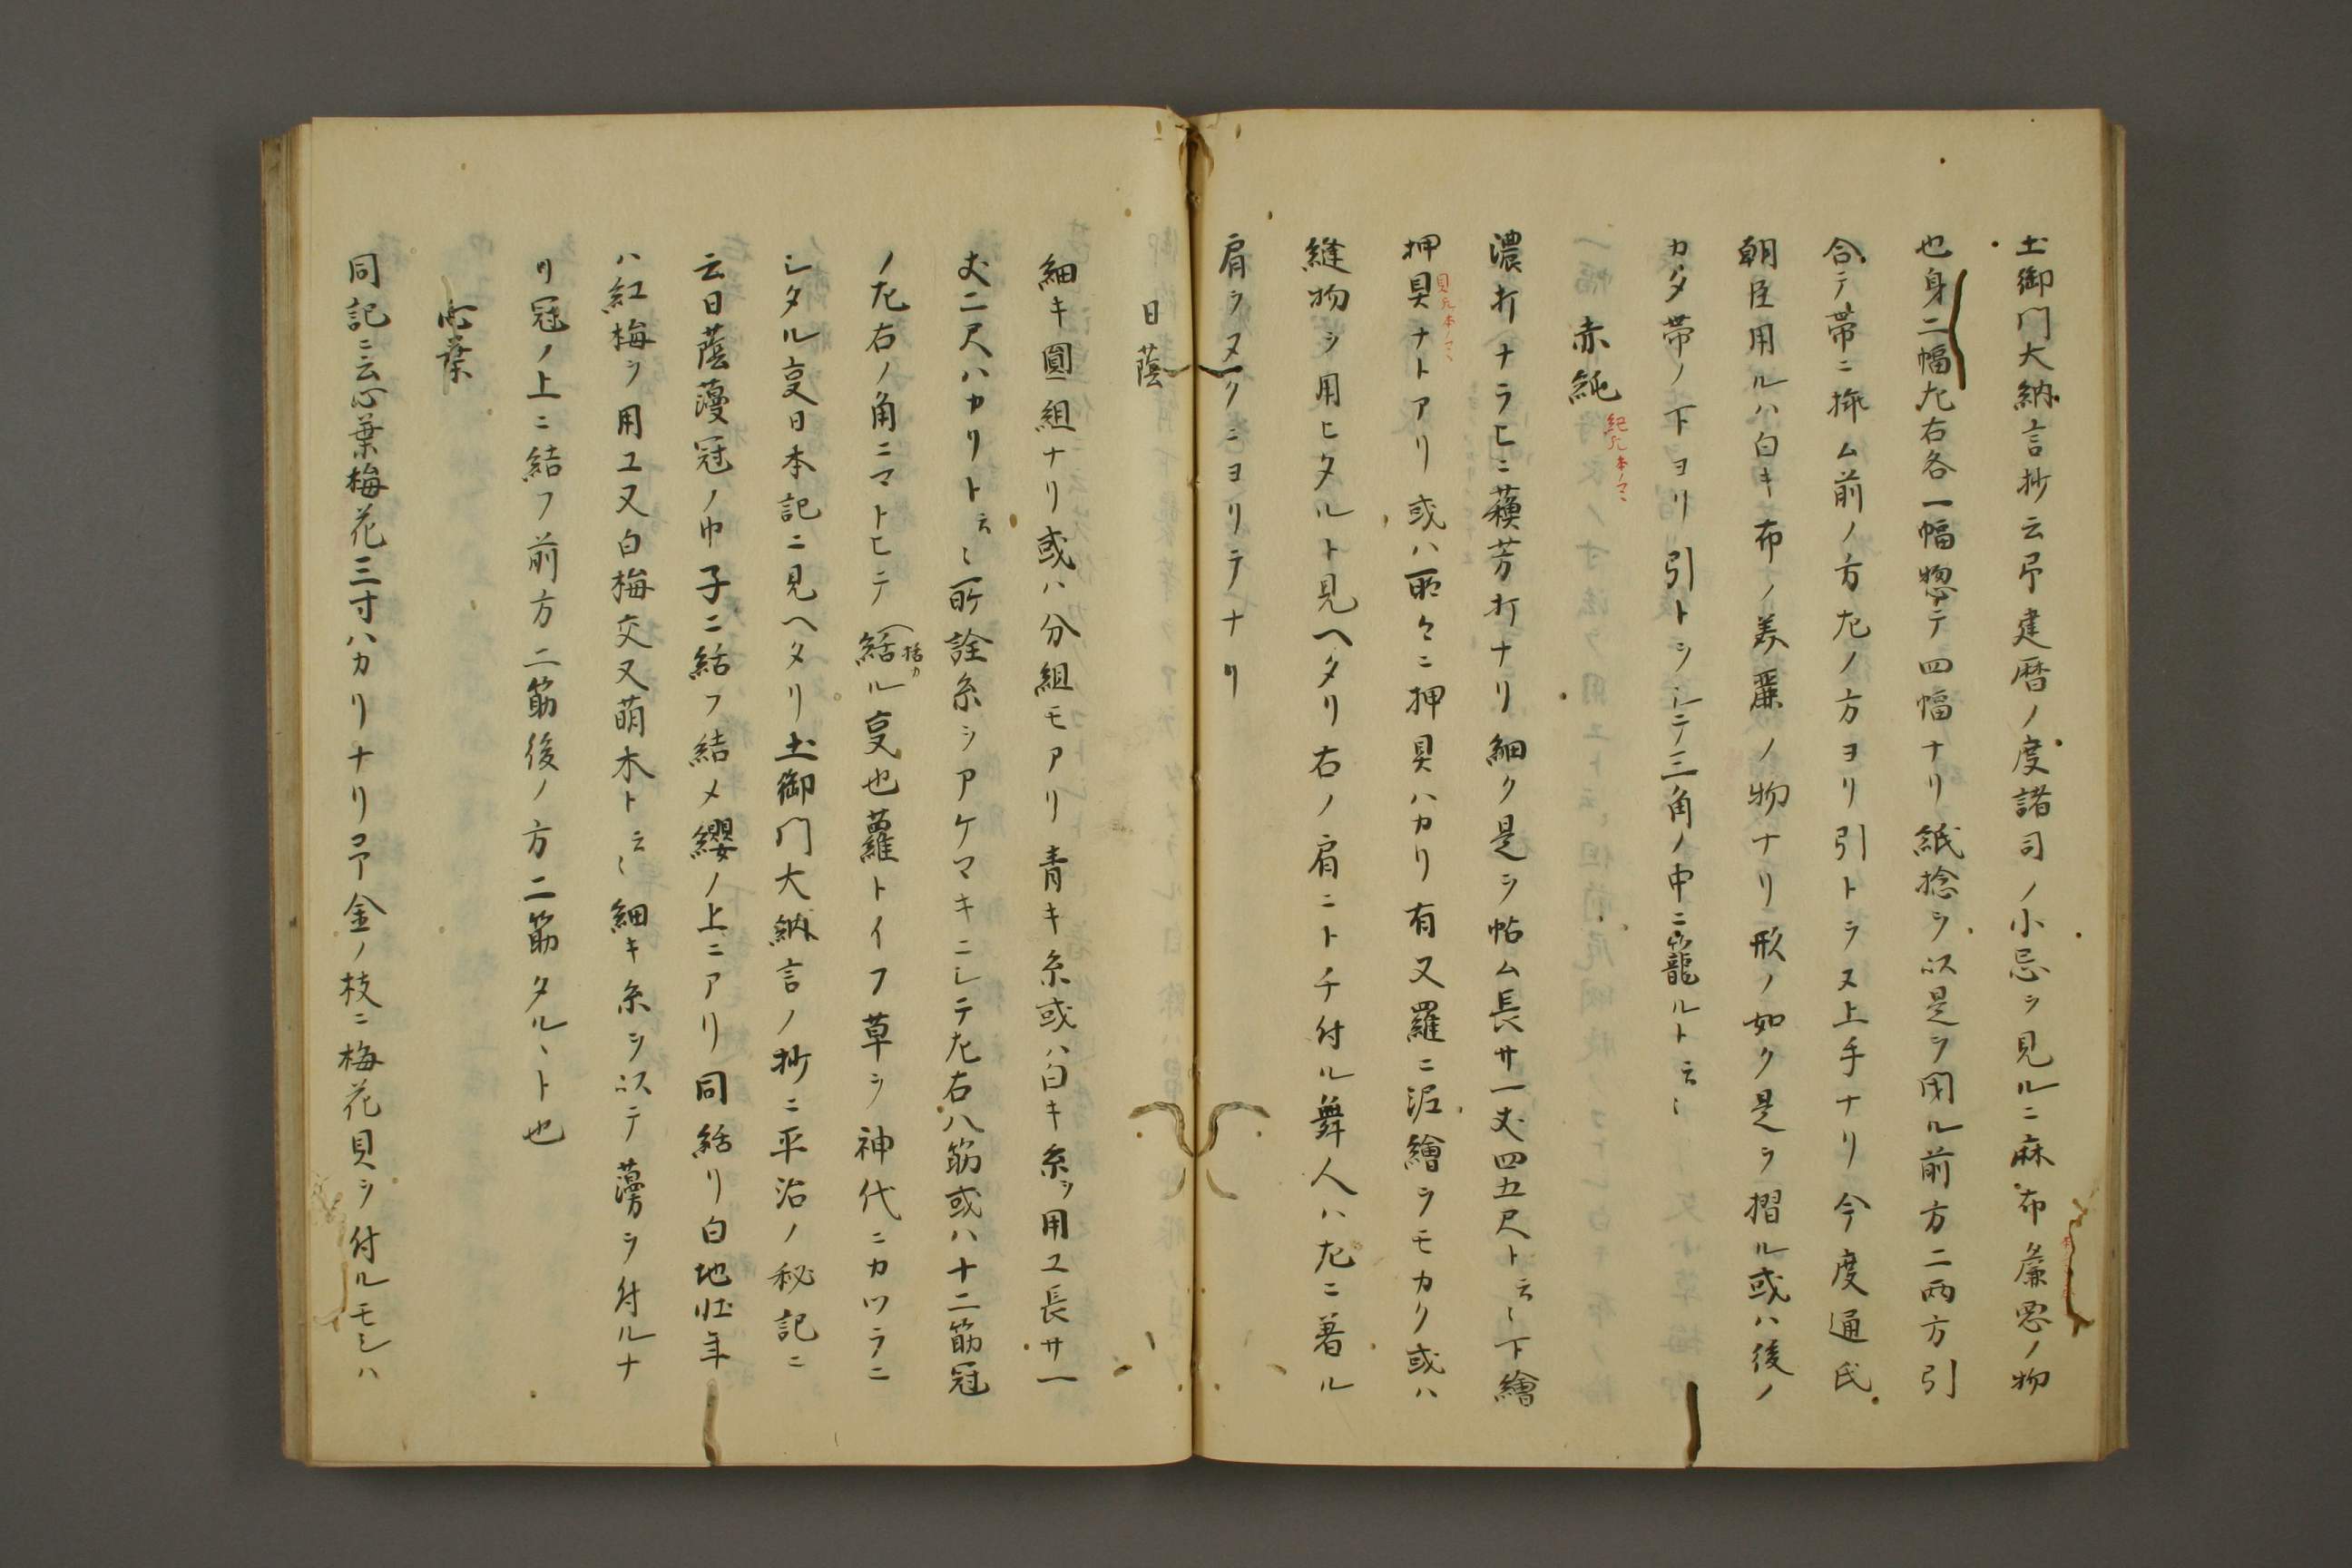 土御門大納言抄云帝建暦ノ度諸司ノ小忌ヲ見ルニ麻布麁悪ノ物
也身二幅左右各一幅惣テ四幅ナリ紙捻ヲ以是ヲ閇ル前方ニ両方引
合テ帯ニ挿ム前ノ方左ノ方ヨリ引トラヌ上手ナリ今度通氏
朝臣用ルハ白キ布ノ美麗ノ物ナリ形ノ如ク是ヲ摺ル或ハ後ノ
カタ帯ノ下ヨリ引トヲシテ三角ノ中ニ籠ルト云〻
赤紐
紐凡本ノマヽ
濃打ナラヒニ蘓芳打ナリ細ク是ヲ帖ム長サ一丈四五尺ト云〻下繪
押貝ナトアリ或ハ所々ニ押貝ハカリ有又羅ニ泥繪ヲモカク或ハ
貝凡本ノマヽ
縫物ヲ用ヒタルト見ヘタリ右ノ肩ニトチ付ル舞人ハ左ニ着ル
肩ヲヌクニヨリテナリ
日蔭
細キ圓組ナリ或ハ分組モアリ青キ糸或ハ白キ糸ヲ用ユ長サ一
丈二尺ハカリト云〻所詮糸ヲアケマキニシテ左右八筋或ハ十二筋冠
ノ左右ノ角ニマトヒテ絬ル㕝也蘿トイフ草ヲ神代ニカツラニ
括カ
シタル㕝日本記ニ見ヘタリ土御門大納言ノ抄ニ平治ノ秘記ニ
云日蔭蘰冠ノ巾子ニ結フ結メ纓ノ上ニアリ同絬リ白地壮年
ハ紅梅ヲ用ユ又白梅交又萌木ト云〻細キ糸ヲ以テ蘰ヲ付ルナ
リ冠ノ上ニ結フ前方二筋後ノ方二筋タルヽト也
心葉
同記ニ云心葉梅花三寸ハカリナリ金ノ枝ニ梅花貝ヲ付ルモシハ